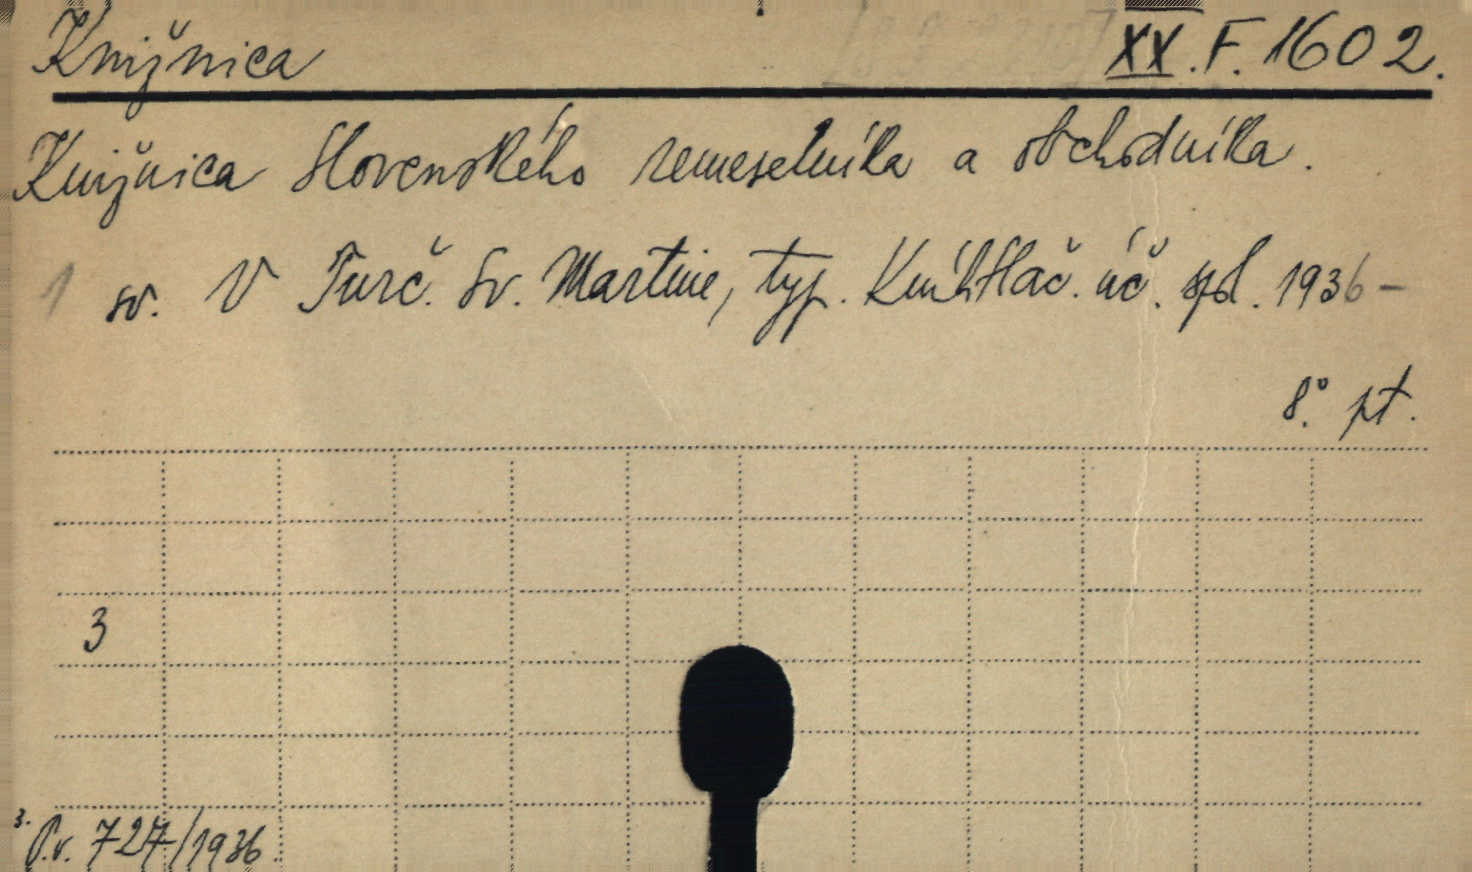 Knižnica XX.F.1602.
Knižnica Slovenského remeselníka a obchodníka.
1 sv. V Turč. Sv. Martine, typ. Kníhtlač. úč. spol. 1936-
8.° pt.
3
3.
P.v. 727/1936.